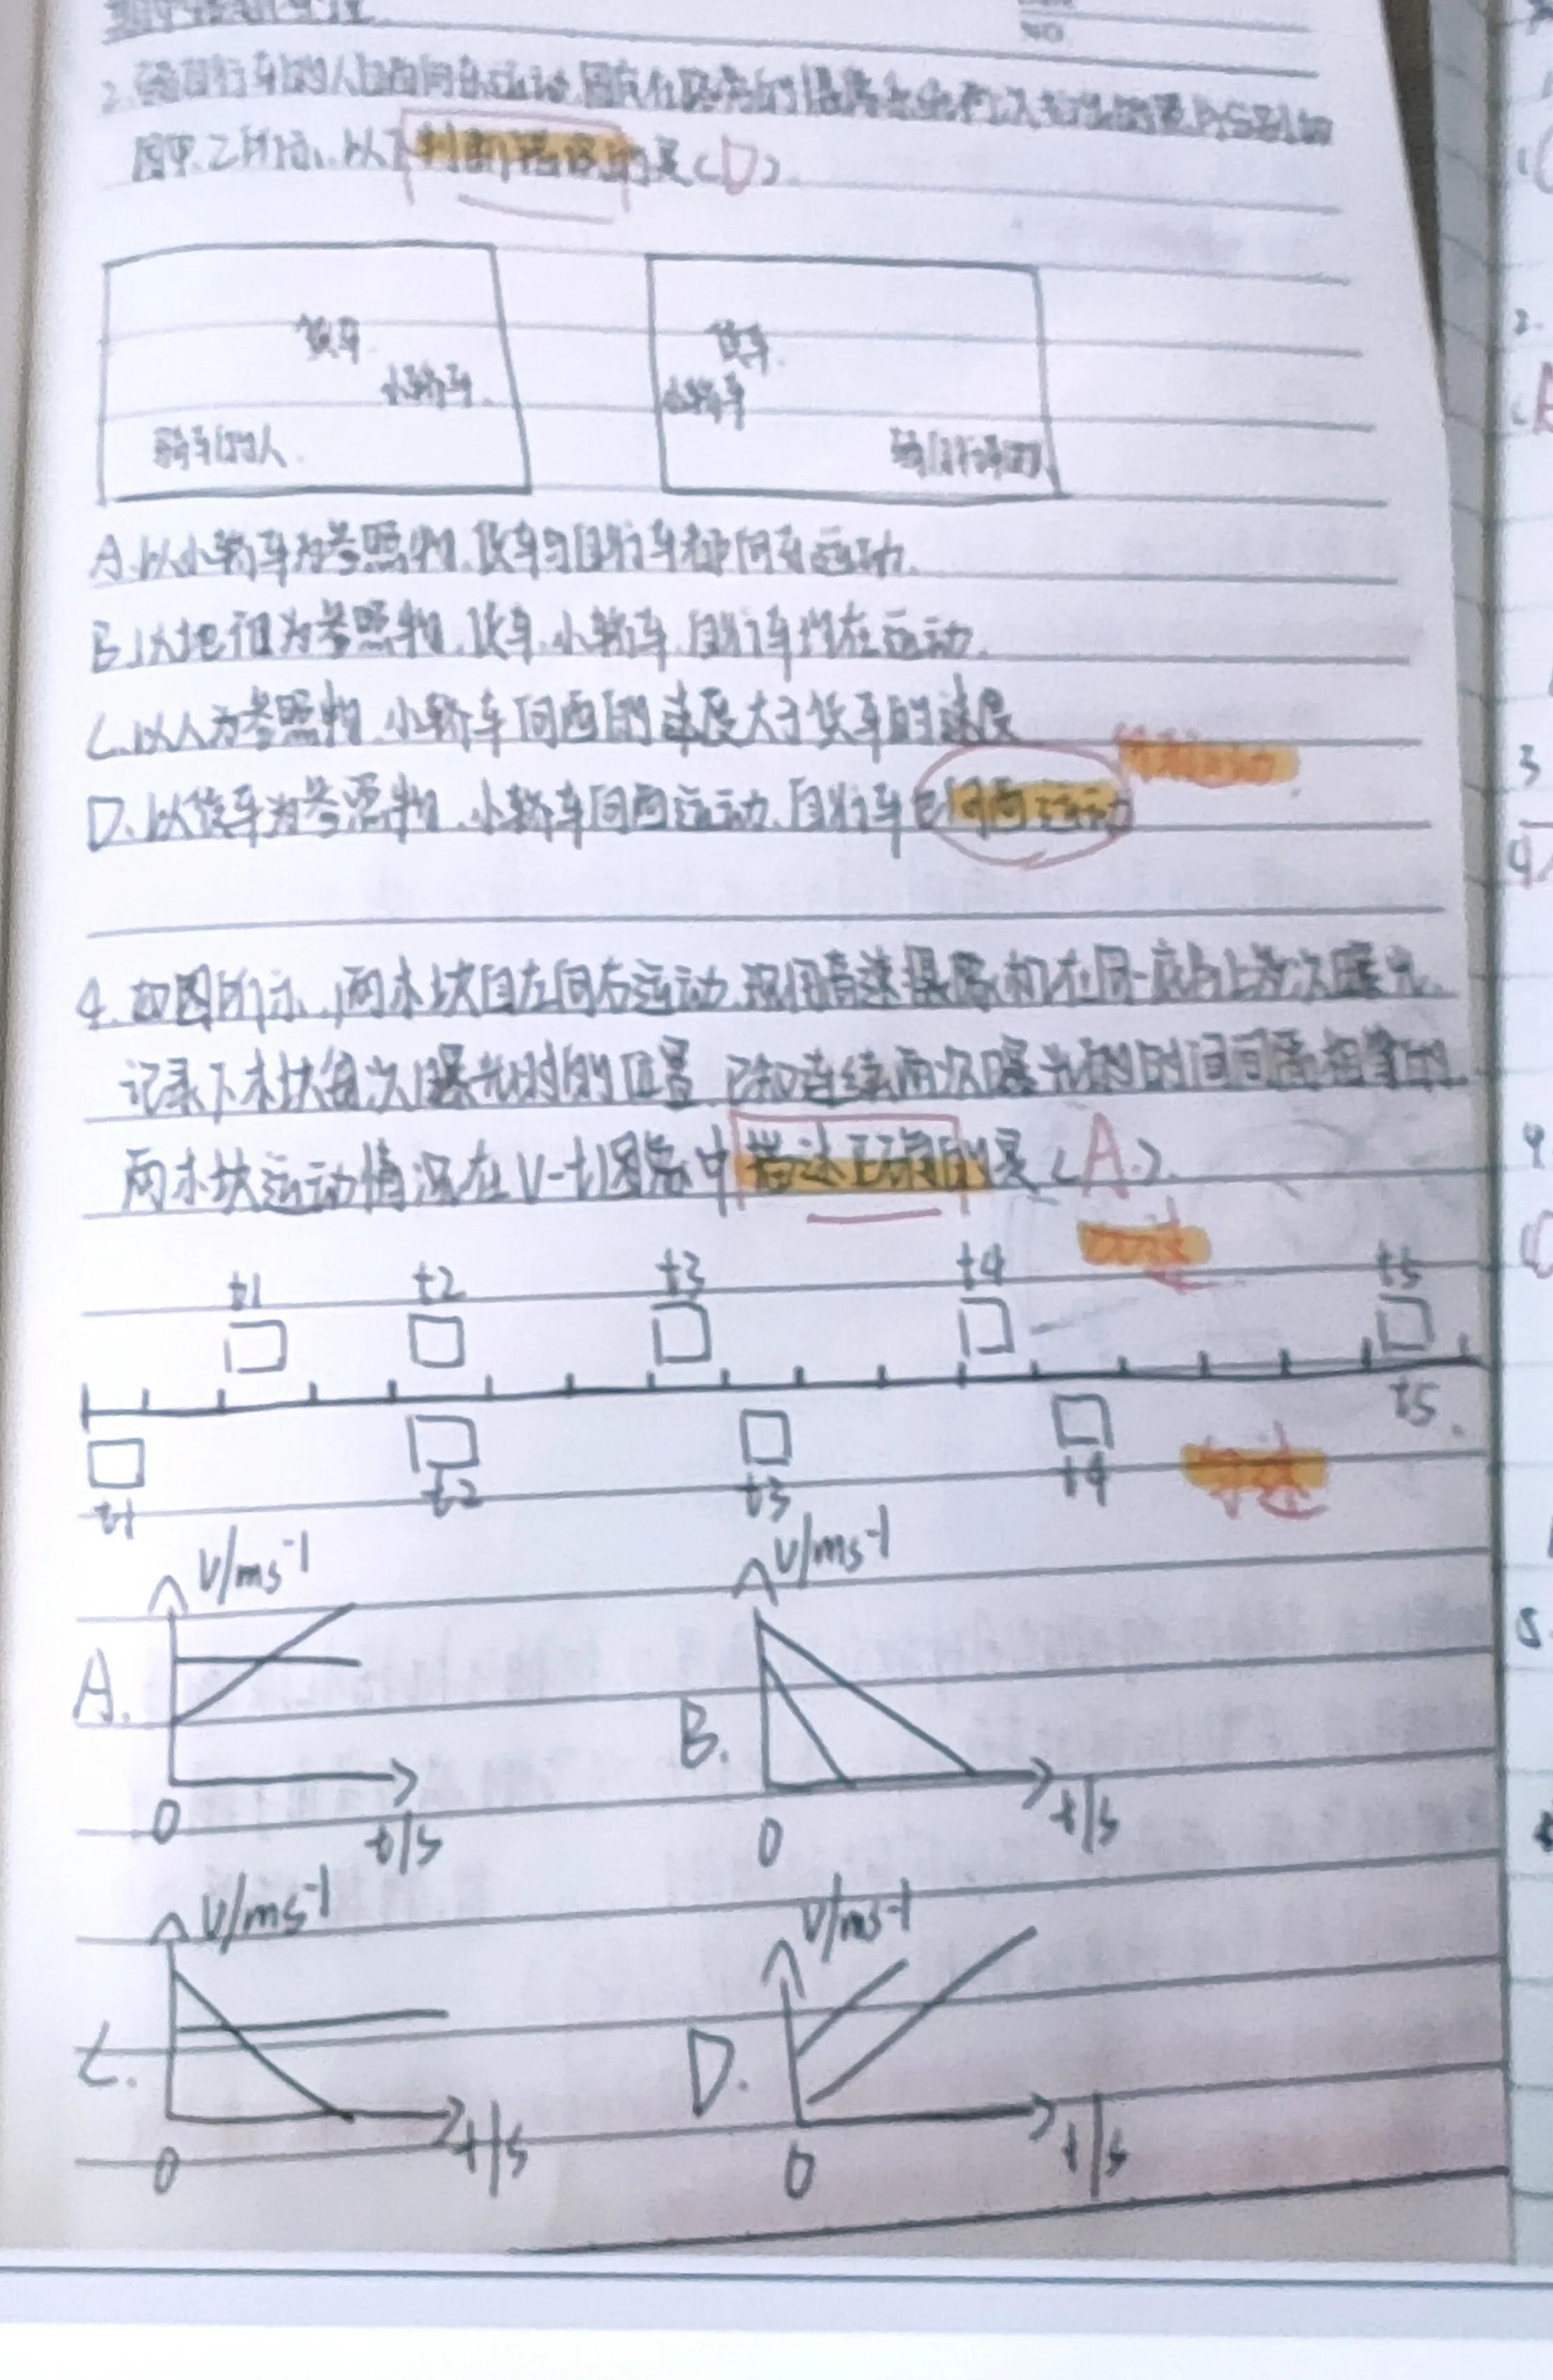 NO
2. 骑自行车的人自西向东运动,固定在路旁的
图甲.乙所示,以下判断错误的是(D)
货车 货车
小轿车 小轿车
骑车的人 骑自行车的
A.以小轿车为参照物.货车与自行车都向东运动.
B.以地面为参照物.货车.小轿车.自行车均在运动.
C.以人为参照物.小轿车向西的速度大于货车的速度
D.以货车为参照物.小轿车向西运动.自行车也向西运动
4.如图所示,两木块自左向右运动.现用高速摄影机在同一底片上多次曝光.
记录下木块每次曝光时的位置.已知连续两次曝光的时间间隔相等的
两木块运动情况在V-t图象中描述正确的是(A.)
t1 t2 t3 t4 t5
t1 t2 t3 t4 t5.
匀速
V/ms⁻¹ V/ms⁻¹
A. B.
0 t/s 0 t/s
V/ms⁻¹ V/ms⁻¹
C. D.
0 t/s 0 t/s